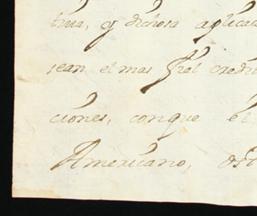 tiva, y dichosa aplicac
sean el mas fiel credi
ciones, con que el
Americano,